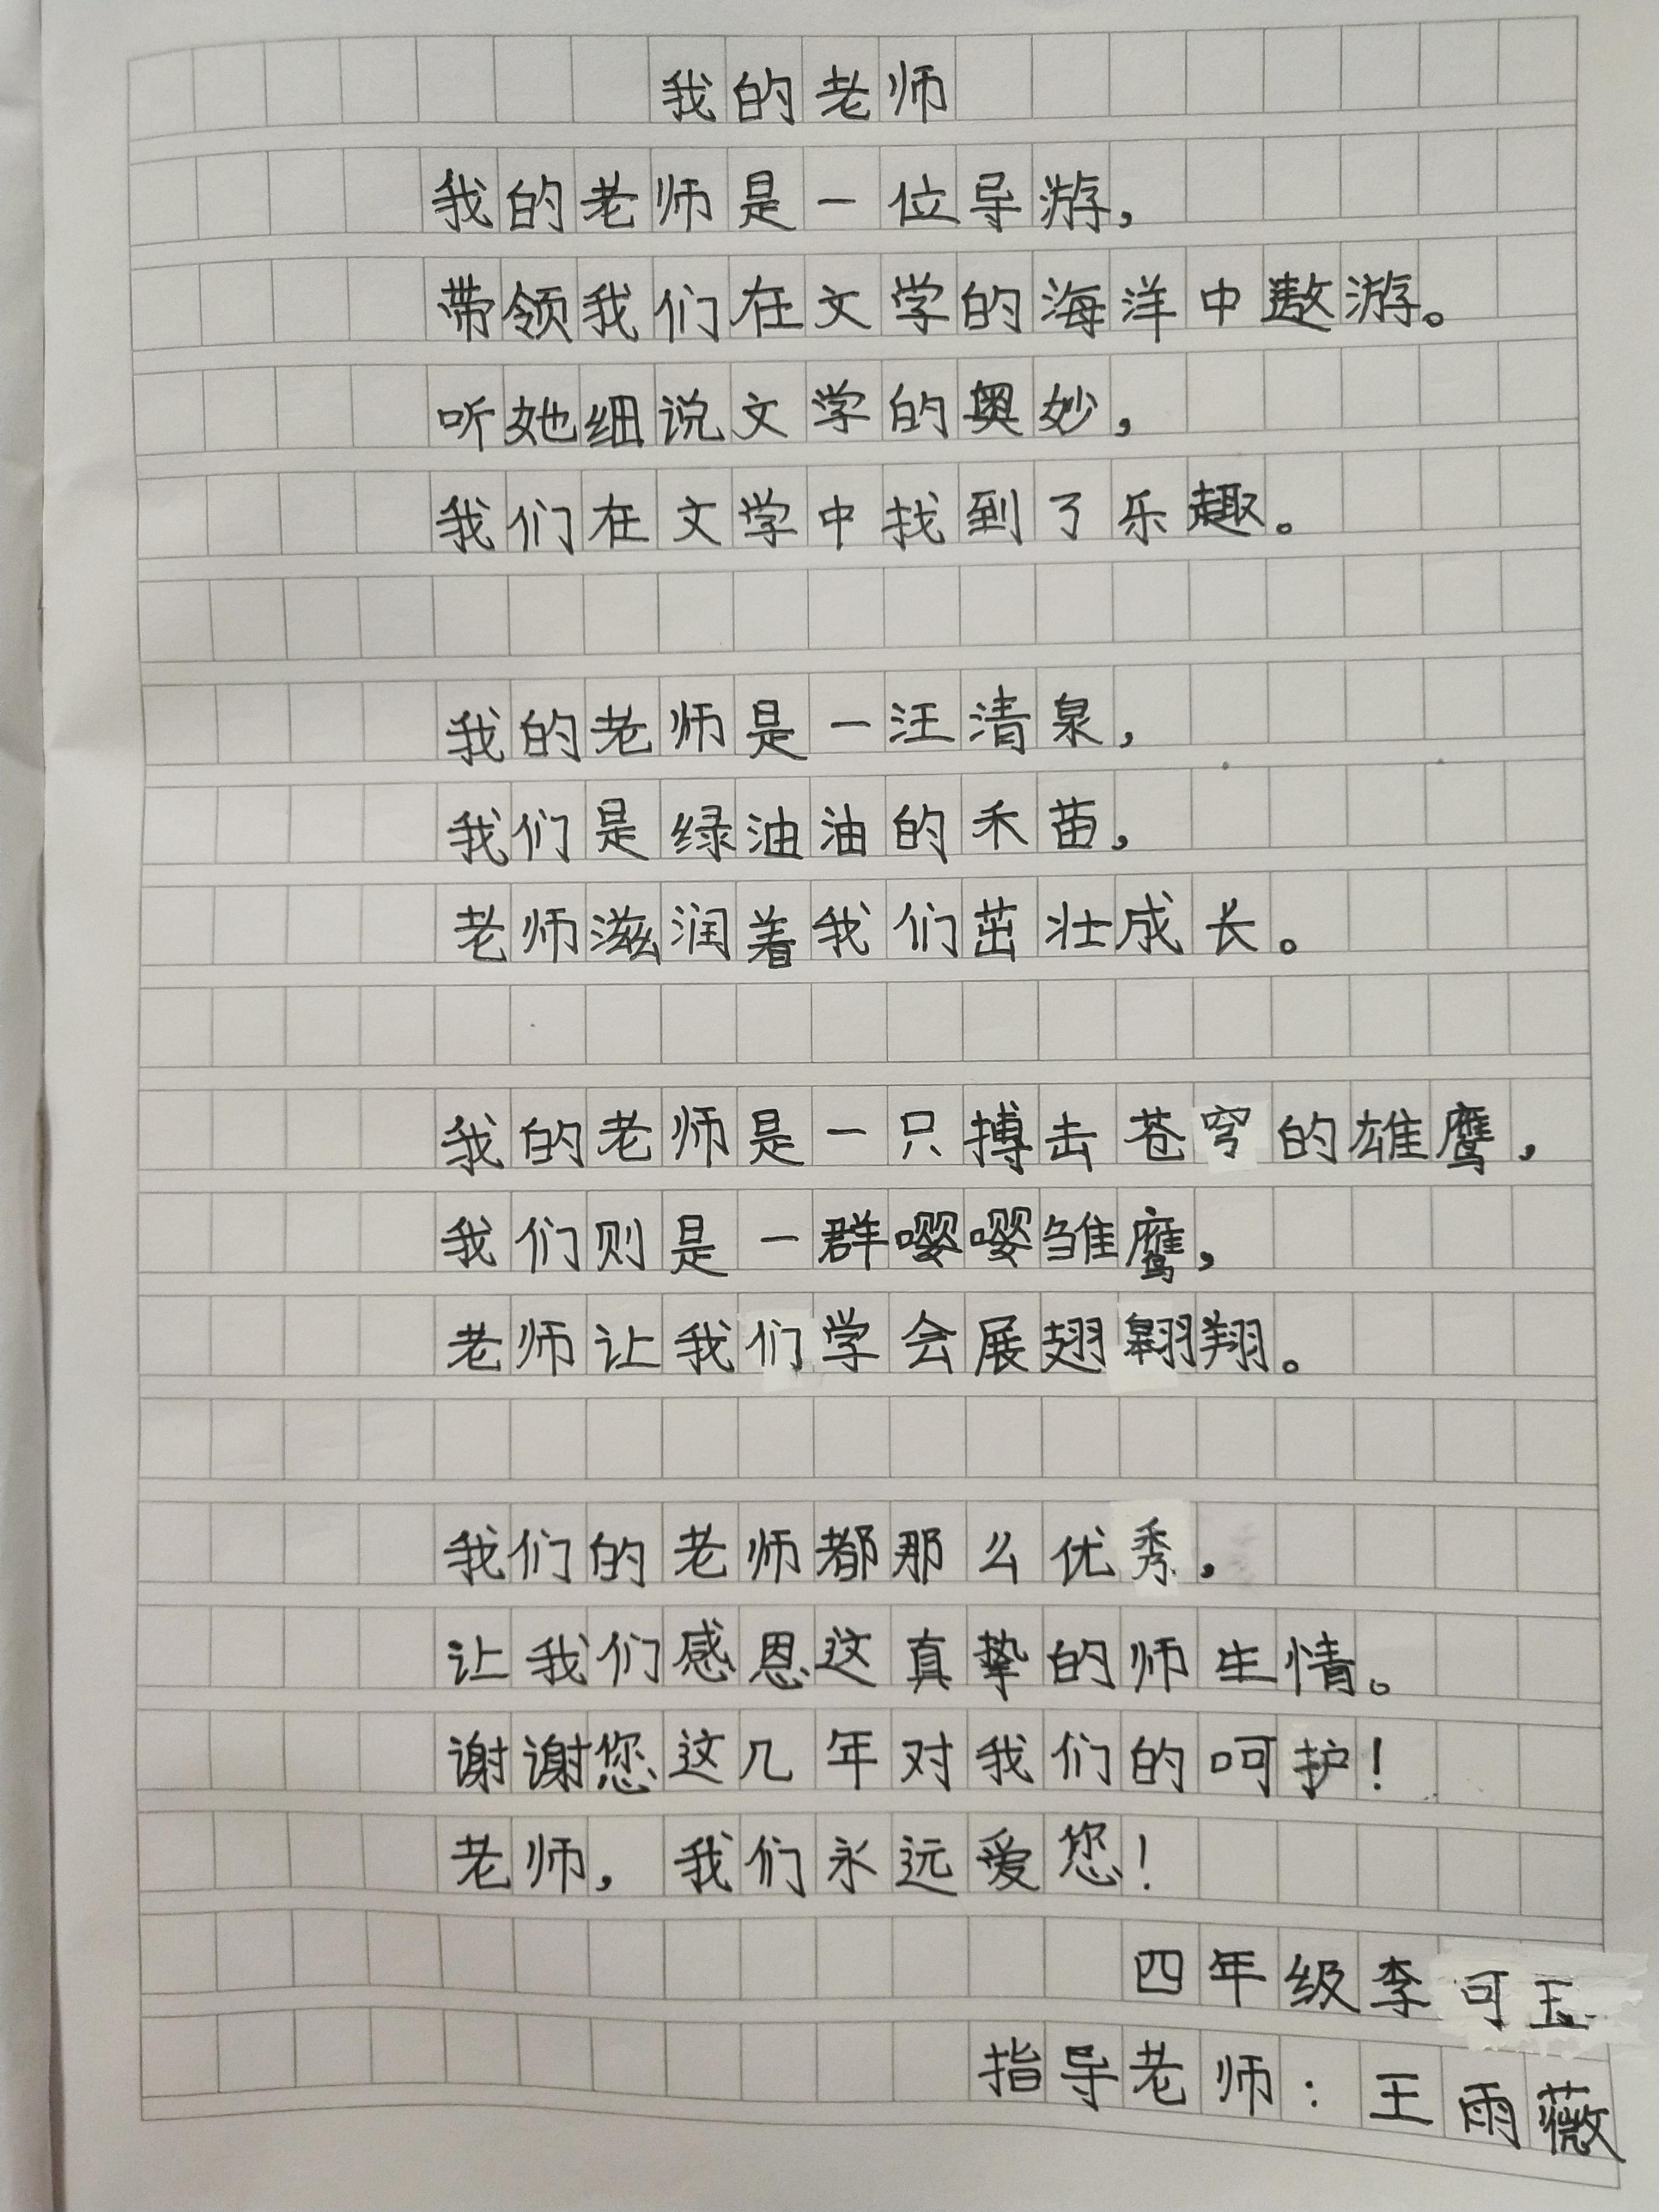 我的老师
我的老师是一位导游，
带领我们在文学的海洋中遨游。
听她细说文学的奥妙，
我们在文学中找到了乐趣。
我的老师是一汪清泉，
我们是绿油油的禾苗，
老师滋润着我们茁壮成长。
我的老师是一只搏击苍穹的雄鹰，
我们则是一群嘤嘤雏鹰，
老师让我们学会展翅翱翔。
我们的老师都那么优秀，
让我们感恩这真挚的师生情。
谢谢您这几年对我们的呵护！
老师，我们永远爱您！
四年级李可玉
指导老师：王雨薇